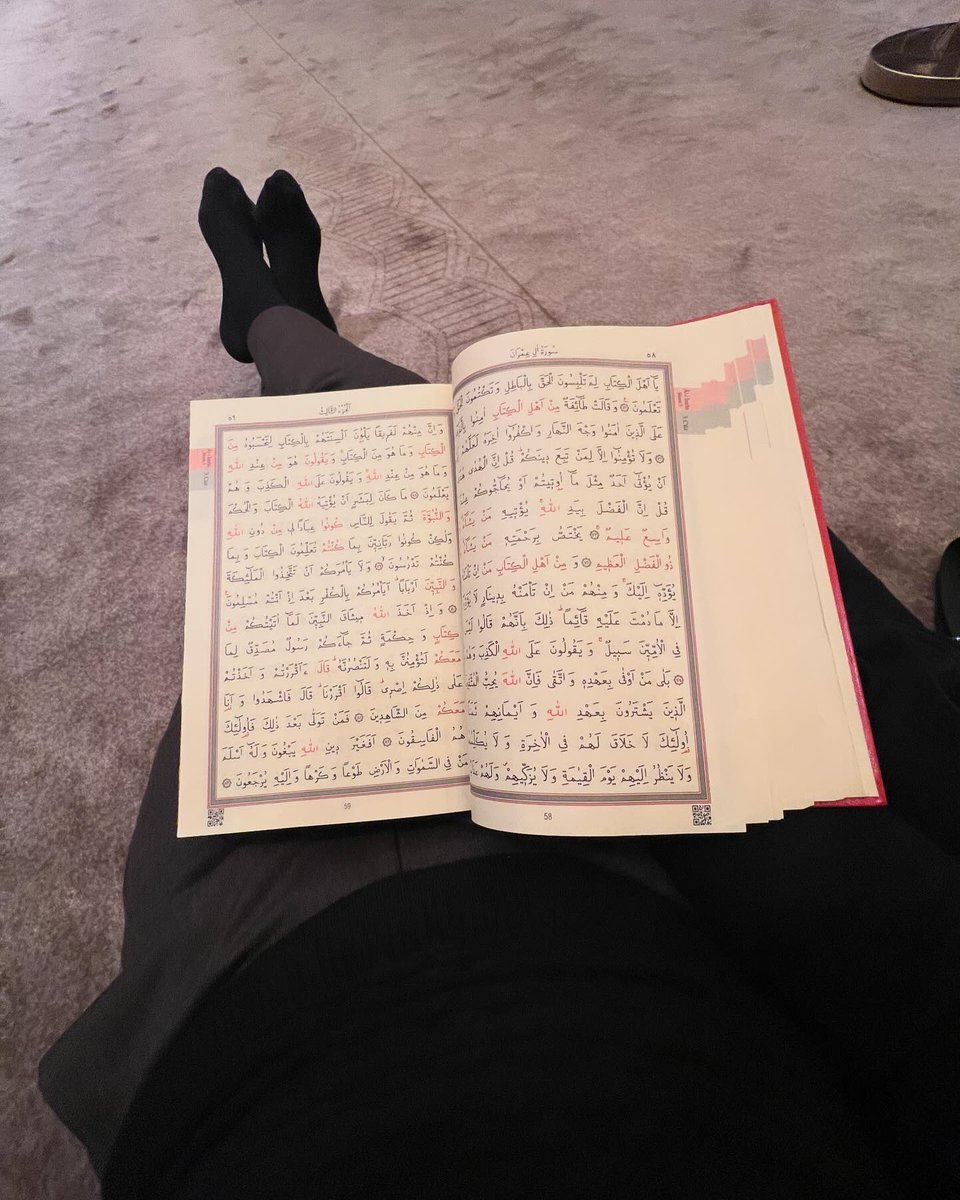 سُورَةُ اٰلِ عِمْرٰنَ
٥٨
يَٓا اَهْلَ الْكِتَابِ لِمَ تَلْبِسُونَ الْحَقَّ بِالْبَاطِلِ وَتَكْتُمُونَ
تَعْلَمُونَ وَقَالَتْ طَٓائِفَةٌ مِنْ اَهْلِ الْكِتَابِ اٰمِنُوا
عَلَى الَّذ۪ينَ اٰمَنُوا وَجْهَ النَّهَارِ وَاكْفُرُٓوا اٰخِرَهُ لَعَلَّهُمْ
وَلَا تُؤْمِنُٓوا اِلَّا لِمَنْ تَبِعَ د۪ينَكُمْ قُلْ اِنَّ الْهُدٰى
اَنْ يُؤْتٰٓى اَحَدٌ مِثْلَ مَٓا اُو۫ت۪يتُمْ اَوْ يُحَٓاجُّوكُمْ
قُلْ اِنَّ الْفَضْلَ بِيَدِ اللّٰهِ يُؤْت۪يهِ مَنْ يَشَٓاءُ
وَاسِعٌ عَل۪يمٌ يَخْتَصُّ بِرَحْمَتِه۪ مَنْ يَشَٓاءُ
ذُو الْفَضْلِ الْعَظ۪يمِ وَمِنْ اَهْلِ الْكِتَابِ مَنْ اِنْ
يُؤَدِّه۪ٓ اِلَيْكَ وَمِنْهُمْ مَنْ اِنْ تَأْمَنْهُ بِد۪ينَارٍ لَا
اِلَّا مَا دُمْتَ عَلَيْهِ قَٓائِمًا ذٰلِكَ بِاَنَّهُمْ قَالُوا لَيْسَ
فِي الْاُمِّيّ۪نَ سَب۪يلٌ وَيَقُولُونَ عَلَى اللّٰهِ الْكَذِبَ
بَلٰى مَنْ اَوْفٰى بِعَهْدِه۪ وَاتَّقٰى فَاِنَّ اللّٰهَ يُحِبُّ
الَّذ۪ينَ يَشْتَرُونَ بِعَهْدِ اللّٰهِ وَاَيْمَانِهِمْ
اُو۬لٰٓئِكَ لَا خَلَاقَ لَهُمْ فِي الْاٰخِرَةِ وَلَا
وَلَا يَنْظُرُ اِلَيْهِمْ يَوْمَ الْقِيٰمَةِ وَلَا يُزَكّ۪يهِمْ وَلَهُمْ
58
اَلْجُزْءُ الثَّالِثُ
٥٩
وَاِنَّ مِنْهُمْ لَفَر۪يقًا يَلْوُ۫نَ اَلْسِنَتَهُمْ بِالْكِتَابِ لِتَحْسَبُوهُ مِنَ
الْكِتَابِ وَمَا هُوَ مِنَ الْكِتَابِ وَيَقُولُونَ هُوَ مِنْ عِنْدِ اللّٰهِ
وَمَا هُوَ مِنْ عِنْدِ اللّٰهِ وَيَقُولُونَ عَلَى اللّٰهِ الْكَذِبَ وَهُمْ
يَعْلَمُونَ مَا كَانَ لِبَشَرٍ اَنْ يُؤْتِيَهُ اللّٰهُ الْكِتَابَ وَالْحُكْمَ
وَالنُّبُوَّةَ ثُمَّ يَقُولَ لِلنَّاسِ كُونُوا عِبَادًا ل۪ي مِنْ دُونِ اللّٰهِ
وَلٰكِنْ كُونُوا رَبَّانِيّ۪نَ بِمَا كُنْتُمْ تُعَلِّمُونَ الْكِتَابَ وَبِمَا
كُنْتُمْ تَدْرُسُونَ وَلَا يَأْمُرَكُمْ اَنْ تَتَّخِذُوا الْمَلٰٓئِكَةَ
وَالنَّبِيّ۪نَ اَرْبَابًا اَيَأْمُرُكُمْ بِالْكُفْرِ بَعْدَ اِذْ اَنْتُمْ مُسْلِمُونَ
وَاِذْ اَخَذَ اللّٰهُ م۪يثَاقَ النَّبِيّ۪نَ لَمَٓا اٰتَيْتُكُمْ مِنْ
كِتَابٍ وَحِكْمَةٍ ثُمَّ جَٓاءَكُمْ رَسُولٌ مُصَدِّقٌ لِمَا
مَعَكُمْ لَتُؤْمِنُنَّ بِه۪ وَلَتَنْصُرُنَّهُ قَالَ ءَاَقْرَرْتُمْ وَاَخَذْتُمْ
عَلٰى ذٰلِكُمْ اِصْر۪ي قَالُٓوا اَقْرَرْنَا قَالَ فَاشْهَدُوا وَاَنَا
مَعَكُمْ مِنَ الشَّاهِد۪ينَ فَمَنْ تَوَلّٰى بَعْدَ ذٰلِكَ فَاُو۬لٰٓئِكَ
هُمُ الْفَاسِقُونَ اَفَغَيْرَ د۪ينِ اللّٰهِ يَبْغُونَ وَلَهُٓ اَسْلَمَ
مَنْ فِي السَّمٰوَاتِ وَالْاَرْضِ طَوْعًا وَكَرْهًا وَاِلَيْهِ يُرْجَعُونَ
59